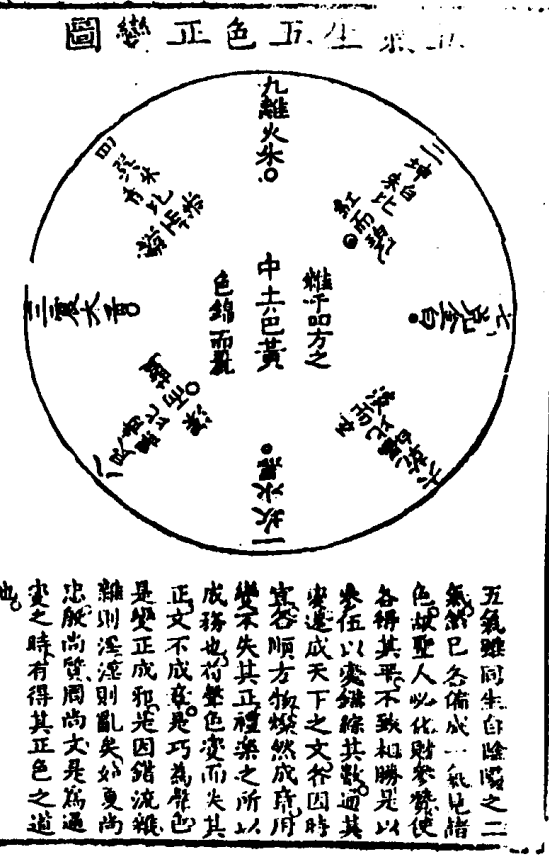 五色正變圖
九離火朱
二坤白朱比
紅而
七兌金白
六乾
一坎水黑
八艮
三震木青
四巽
中土色黃
雜於四方之
色錦而
五氣雖同生自陰陽之二
氣然已各偏成一氣見諸
色故聖人必化財參贊使
各得其平不致相勝是以
參伍以變錯綜其數通其
變遂成天下之文各因時
宜各順方物燦然成章用
變不失其正禮樂之所以
成務也苟聲色變而失其
正文不成章是巧為聲色
是變正成邪是因錯流雜
雜則淫淫則亂矣如夏尚
忠殷尚質周尚文是為通
變之時有得其正色之道
也